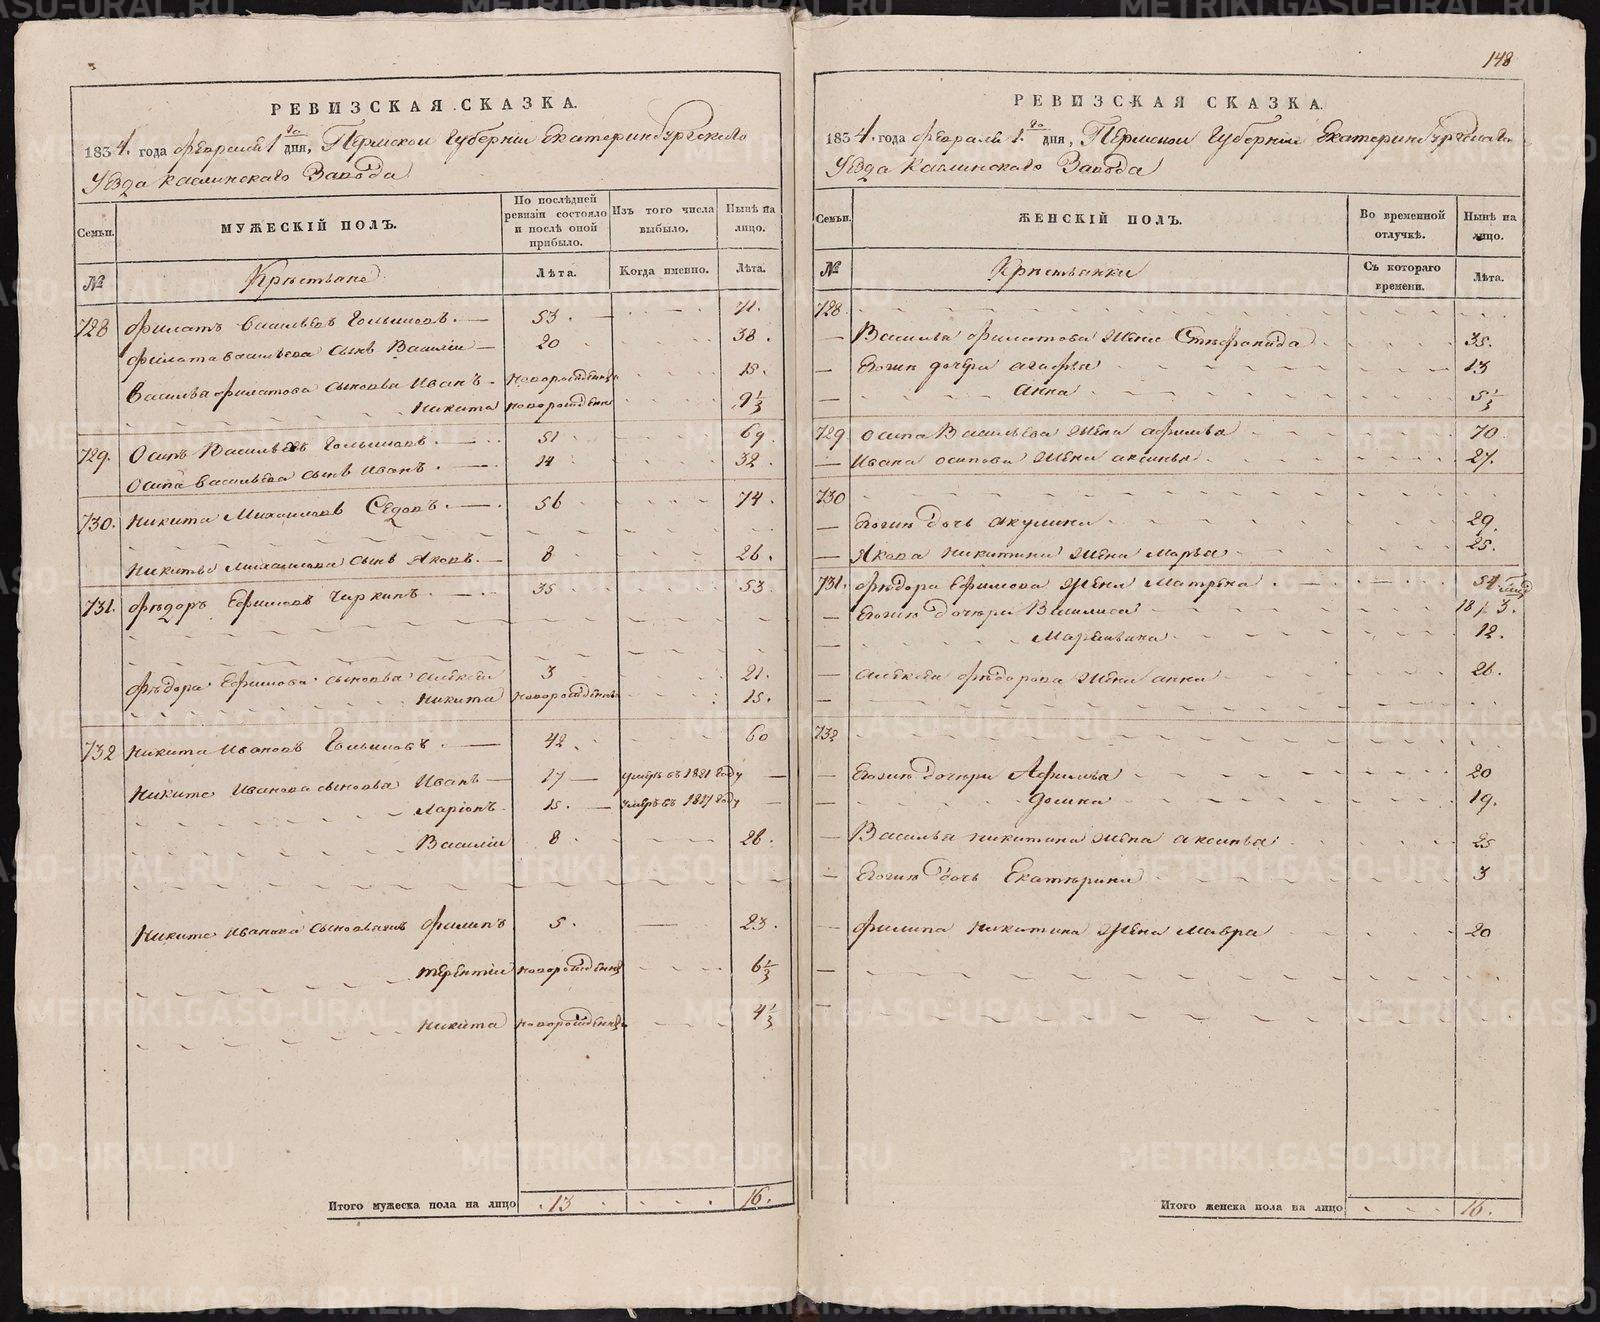 148
РЕВИЗСКАЯ СКАЗКА.
1834. года февраля 1го дня, Пермской Губерніи Екатеринбургскаго
Уезда Каслинскаго Завода
Семьи.
МУЖЕСКІЙ ПОЛЪ.
По послѣдней ревизіи состояло и послѣ оной прибыло.
Изъ того числа выбыло.
Нынѣ на лицо.
№
Крестьяне
Лѣта.
Когда именно.
Лѣта.
728 Филатъ Васильевъ 53. 71.
Филата Васильева сынъ Василіи 20 38.
Василья Филатова сыновья Иванъ новорожденны 15.
Никита новорожденны 9 1/3
729. Осипъ Васильевъ 51 69.
Осипа Васильева сынъ Иванъ. 14 32.
730. Никита Михаиловъ Седовъ. 56 74.
Никиты Михаилова сынъ Яковъ. 8 26.
731. Федоръ Ефимовъ Чиркинъ. 35 53.
Федора Ефимова сыновья Алексеи 3 21.
Никита новорожденны 15.
732 Никита Ивановъ 42. 60
Никиты Иванова сыновья Иванъ 17 умре въ 1821 году
Ларіонъ 15. умре въ 1817 году
Василіи 8 26.
Никиты Иванова сыновья Филипъ 5. 23.
Терентіи новорожденны 6 1/3
Никита новорожденны 4 1/3
Итого мужеска пола на лицо 13 16.
РЕВИЗСКАЯ СКАЗКА.
1834. года февраля 1го дня, Пермской Губерніи Екатеринбургскаго
Уезда Каслинскаго Завода
Семьи.
ЖЕНСКІЙ ПОЛЪ.
Во временной отлучкѣ.
Нынѣ на лицо.
№
Крестьянки
Съ котораго времени.
Лѣта.
728
Василья Филатова жена Стефанида 35.
Егожъ дочери Агафья 13
Анна 5 1/3
729 Осипа Васильева жена Афимья 70.
Ивана Осипова жена Аксинья 27.
730
Егожъ дочь Акулина 29.
Якова Никитина жена Марья 25.
731. Федора Ефимова жена Матрена 54
Егожъ дочери Василиса 18
Маремьяна 12.
Алексея Федорова жена Анна 26.
732
Егожъ дочери Афимья 20
Домна 19.
Василья Никитина жена Аксинья 25
Егожъ дочь Екатерина 3
Филипа Никитина жена Мавра 20
Итого женска пола на лицо 16.
METRIKI.GASO-URAL.RU